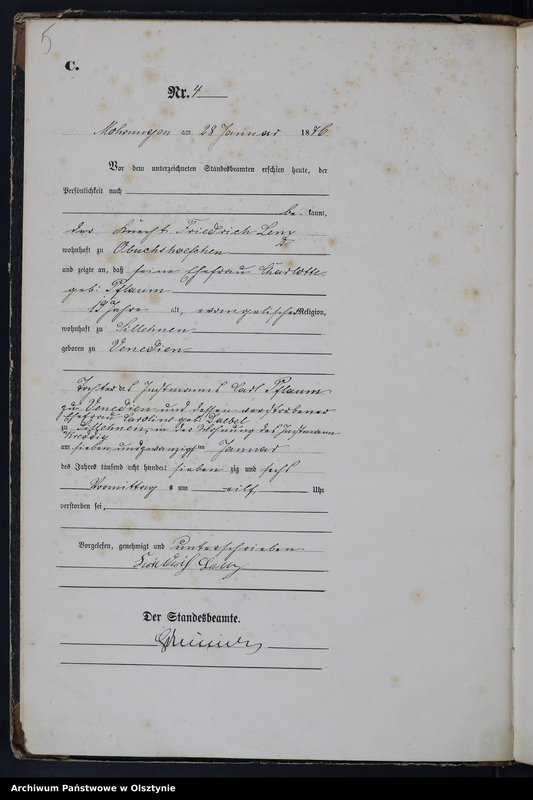 5
C.
Nr. 4
Mohrungen am 28 Januar 1876
Vor dem unterzeichneten Standesbeamten erschien heute, der
Persönlichkeit nach
be kannt,
der Knecht Friedrich Lenz
wohnhaft zu Obuchshoefchen
und zeigte an, daß seine Ehefrau Charlotte
geb: Pflaum
Jahre alt, evangelischer Religion,
wohnhaft zu Sillehnen
geboren zu Venedien
Tochter des Instmanns Carl Pflaum
zu Venedien und dessen verstorbener
Ehefrau Caroline geb: Daebel
zu Sillehnen, in der Wohnung des Instmann
am sieben und zwanzigsten Januar
des Jahres tausend acht hundert sieben zig und sechs
Vormittag s um eilf Uhr
verstorben sei.
Vorgelesen, genehmigt und unterschrieben
Friedrich Lenz
Der Standesbeamte.
Archiwum Państwowe w Olsztynie